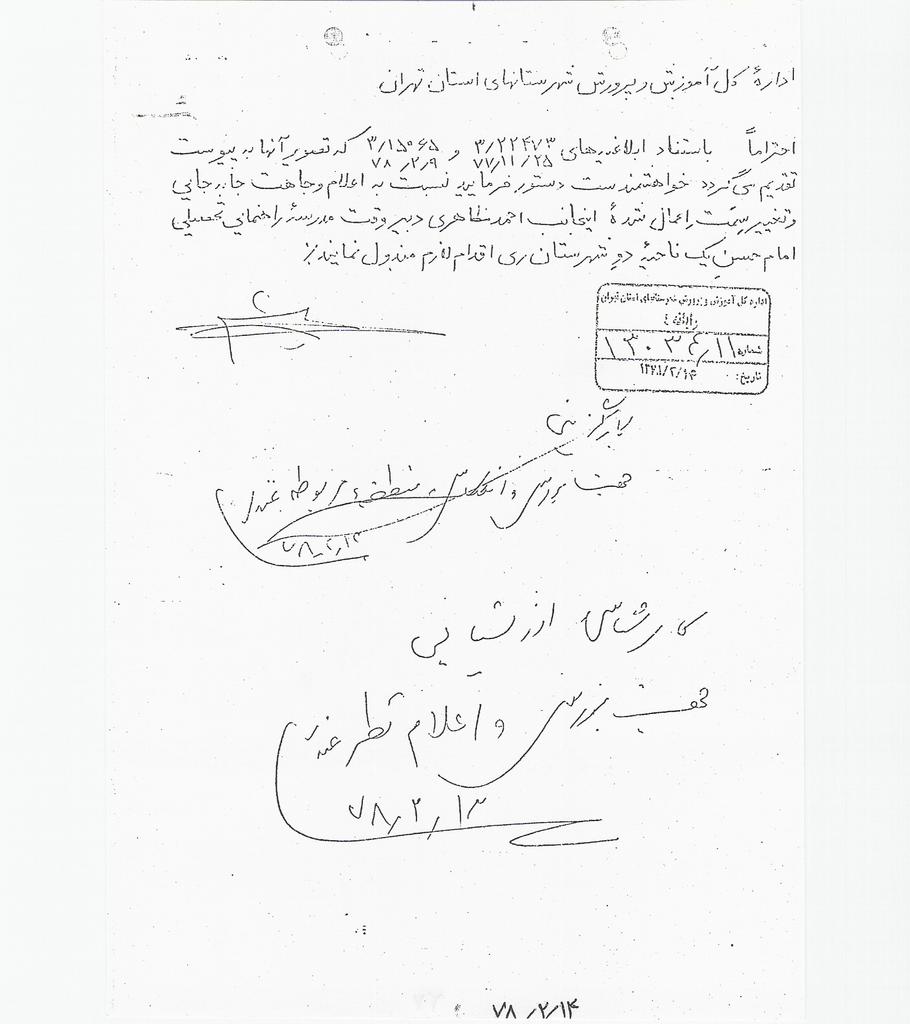 ادارهٔ کل آموزش و پرورش شهرستانهای استان تهران
احتراماً باستناد ابلاغیه‌های ۳/۲۲۴۷۳ و ۳/۱۵۰۶۵ که تصویر آنها به پیوست
۷۷/۱۱/۲۵ ۷۸/۲/۹
تقدیم می‌گردد خواهشمند است دستور فرمایید نسبت به اعلام وجاهت جابه‌جایی
و تغییر سِمَت اِعمال شدهٔ اینجانب احمد مظاهری دبیر وقت مدرسهٔ راهنمایی تحصیلی
امام حسن یک ناحیهٔ دو شهرستان ری اقدام لازم مبذول نمایند./:
اداره کل آموزش و پرورش شهرستانهای استان تهران
شماره
تاریخ:
کارگزینی
جهت بررسی و انعکاس به منطقه مربوطه
۷۸/۲/۱۳
کارشناسی ارزشیابی
جهت بررسی و اعلام نظر
۷۸/۲/۱۳
۷۸/۲/۱۴